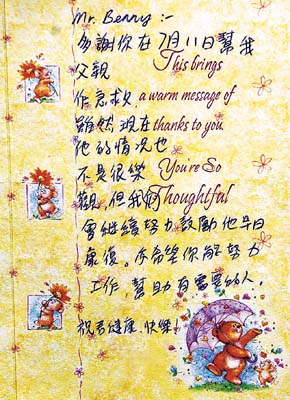 Mr. Benny :-
多謝你在7月11日幫我
父親
This brings
作急救,
a warm message of
雖然現在
thanks to you.
他的情況也
不是很樂
You're So
觀,但我們
Thoughtful
會繼續努力鼓勵他早日
康復。亦希望你能努力
工作,幫助有需要的人。
祝君健康,快樂!